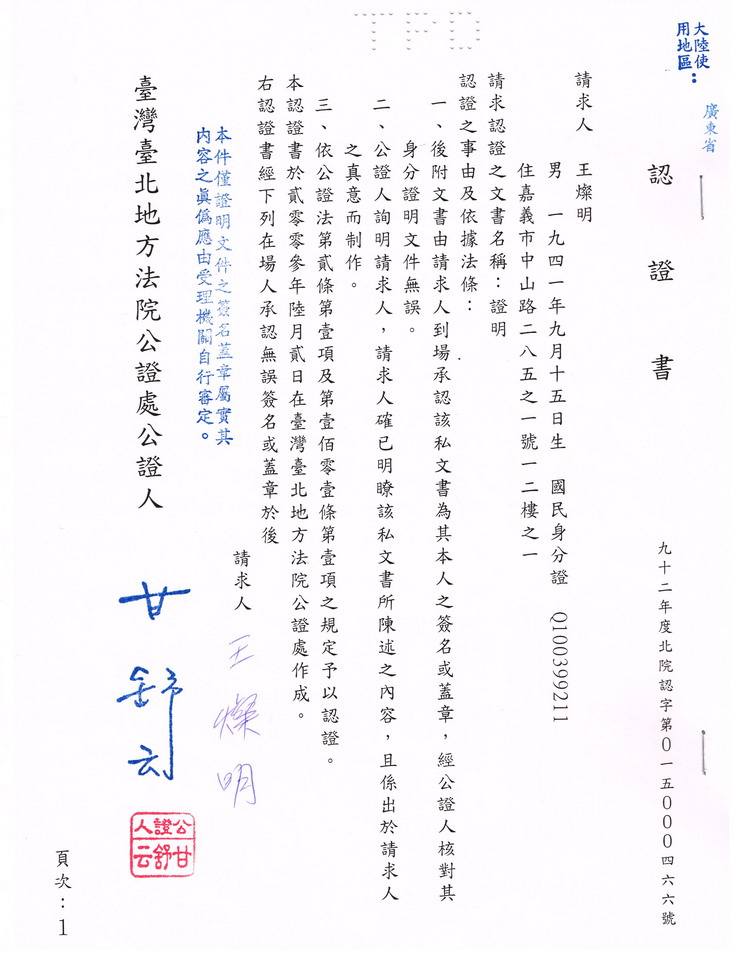 大陸使
用地區：
廣東省
認證書
九十二年度北院認字第0一五000四六六號
請求人　王燦明
男　一九四一年九月十五日生　國民身分證　Q100399211
住嘉義市中山路二八五之一號一二樓之一
請求認證之文書名稱：證明
認證之事由及依據法條：
一、後附文書由請求人到場承認該私文書為其本人之簽名或蓋章，經公證人核對其
身分證明文件無誤。
二、公證人詢明請求人，請求人確已明瞭該私文書所陳述之內容，且係出於請求人
之真意而制作。
三、依公證法第貳條第壹項及第壹佰零壹條第壹項之規定予以認證。
本認證書於貳零零參年陸月貳日在臺灣臺北地方法院公證處作成。
右認證書經下列在場人承認無誤簽名或蓋章於後
請求人　王燦明
本件僅證明文件之簽名蓋章屬實其
內容之眞僞應由受理機關自行審定。
臺灣臺北地方法院公證處公證人　甘舒云
公證人
甘舒云
頁次：1
TPD